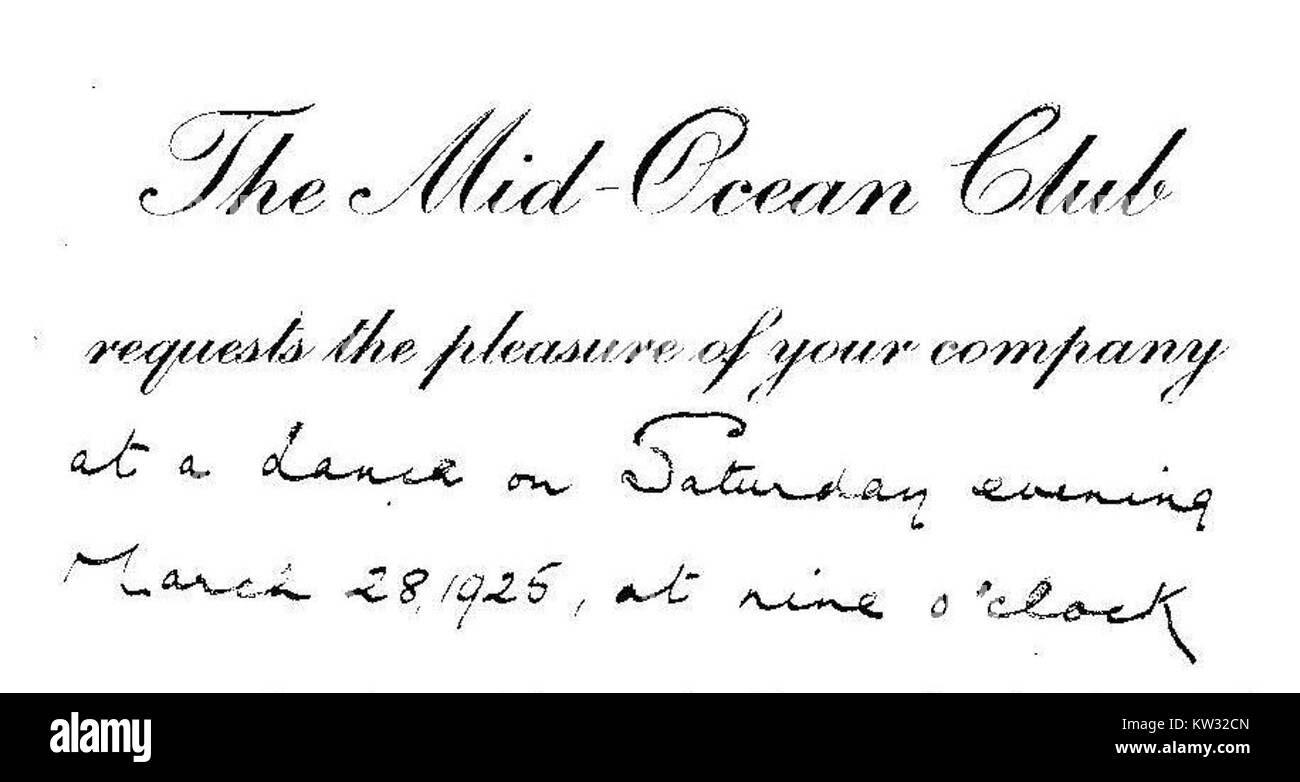 The Mid-Ocean Club
requests the pleasure of your company
at a dance on Saturday evening
March 28, 1925, at nine o'clock
alamy
Image ID: KW32CN
www.alamy.com